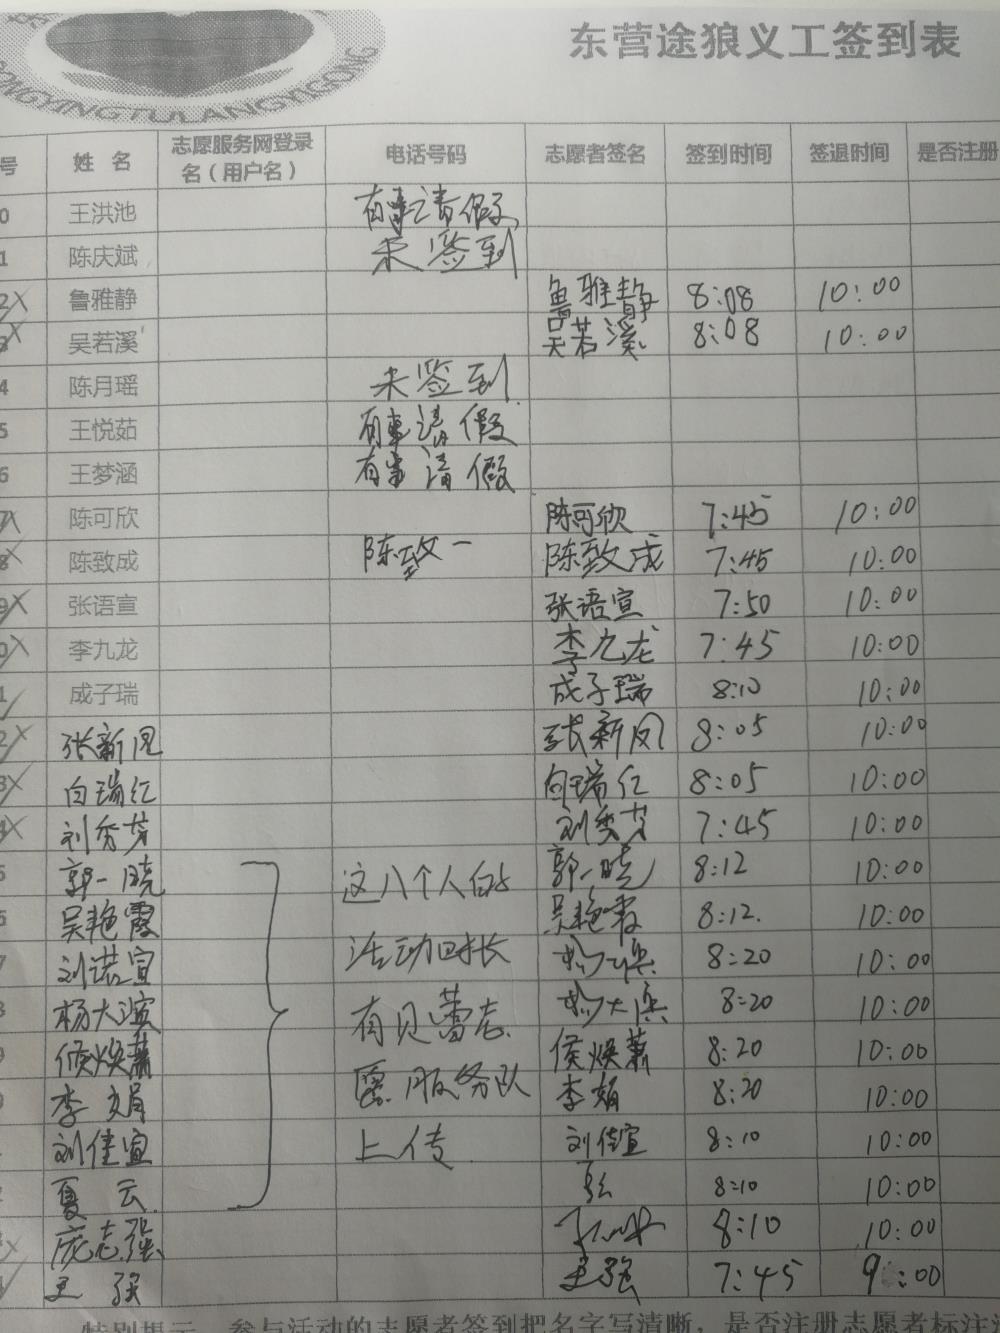 DONGYINGTULANGYIGONG
东营途狼义工签到表
号 姓 名 志愿服务网登录名（用户名） 电话号码 志愿者签名 签到时间 签退时间 是否注册
0 王洪池 有事请假
1 陈庆斌 未签到
2 鲁雅静 鲁雅静 8:08 10:00
3 吴若溪 吴若溪 8:08 10:00
4 陈月瑶 未签到
5 王悦茹 有事请假
6 王梦涵 有事请假
7 陈可欣 陈可欣 7:45 10:00
8 陈致成 陈致一 陈致成 7:45 10:00
9 张语宣 张语宣 7:50 10:00
0 李九龙 李九龙 7:45 10:00
1 成子瑞 成子瑞 8:10 10:00
2 张新凤 张新凤 8:05 10:00
3 白瑞红 白瑞红 8:05 10:00
4 刘秀芳 刘秀芳 7:45 10:00
5 郭一晓 这八个人的 郭一晓 8:12 10:00
6 吴艳霞 吴艳霞 8:12. 10:00
7 刘诺宣 活动时长 8:20 10:00
8 杨大滨 有贝蕾志 杨大滨 8:20 10:00
9 侯焕萧 侯焕萧 8:20 10:00
0 李娟 愿服务队 李娟 8:20 10:00
刘佳宣 上传 刘佳宣 8:10 10:00
2 夏云 8:10 10:00
庞志强 8:10 10:00
王强 王强 7:45 9:00
特别提示：参与活动的志愿者签到把名字写清晰，是否注册志愿者标注